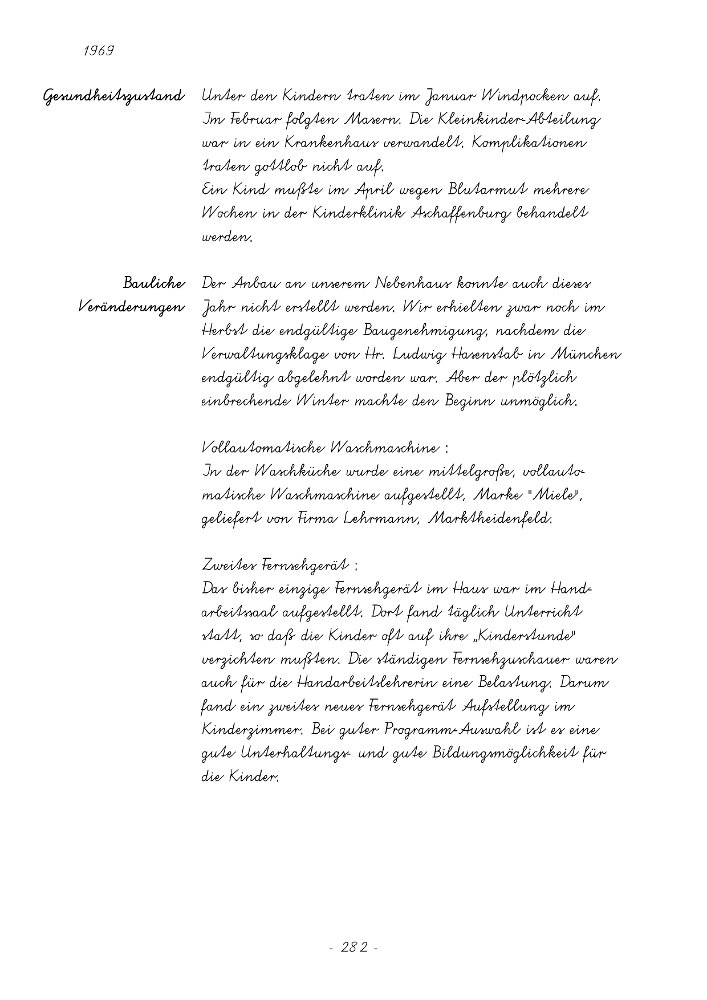 1969
Gesundheitszustand Unter den Kindern traten im Januar Windpocken auf.
Im Februar folgten Masern. Die Kleinkinder-Abteilung
war in ein Krankenhaus verwandelt. Komplikationen
traten gottlob nicht auf.
Ein Kind mußte im April wegen Blutarmut mehrere
Wochen in der Kinderklinik Aschaffenburg behandelt
werden.
Bauliche Der Anbau an unserem Nebenhaus konnte auch dieses
Veränderungen Jahr nicht erstellt werden. Wir erhielten zwar noch im
Herbst die endgültige Baugenehmigung, nachdem die
Verwaltungsklage von Hr. Ludwig Hasenstab in München
endgültig abgelehnt worden war. Aber der plötzlich
einbrechende Winter machte den Beginn unmöglich.
Vollautomatische Waschmaschine :
In der Waschküche wurde eine mittelgroße, vollauto-
matische Waschmaschine aufgestellt, Marke "Miele",
geliefert von Firma Lehrmann, Marktheidenfeld.
Zweites Fernsehgerät :
Das bisher einzige Fernsehgerät im Haus war im Hand-
arbeitssaal aufgestellt. Dort fand täglich Unterricht
statt, so daß die Kinder oft auf ihre „Kinderstunde"
verzichten mußten. Die ständigen Fernsehzuschauer waren
auch für die Handarbeitslehrerin eine Belastung. Darum
fand ein zweites neues Fernsehgerät Aufstellung im
Kinderzimmer. Bei guter Programm-Auswahl ist es eine
gute Unterhaltungs- und gute Bildungsmöglichkeit für
die Kinder.
- 282 -